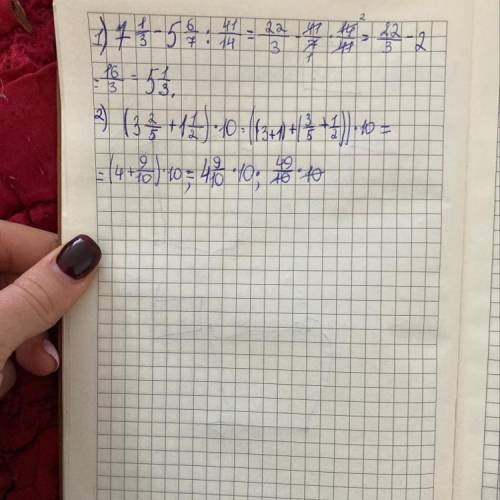 1) 7 1/3 - 5 6/7 : 41/14 = 22/3 - 41/7 · 14/41 = 22/3 - 2
= 16/3 = 5 1/3.
2) (3 2/5 + 1 1/2) · 10 = ((3+1) + (3/5 + 1/2)) · 10 =
= (4 + 9/10) · 10 = 4 9/10 · 10 = 49/10 · 10